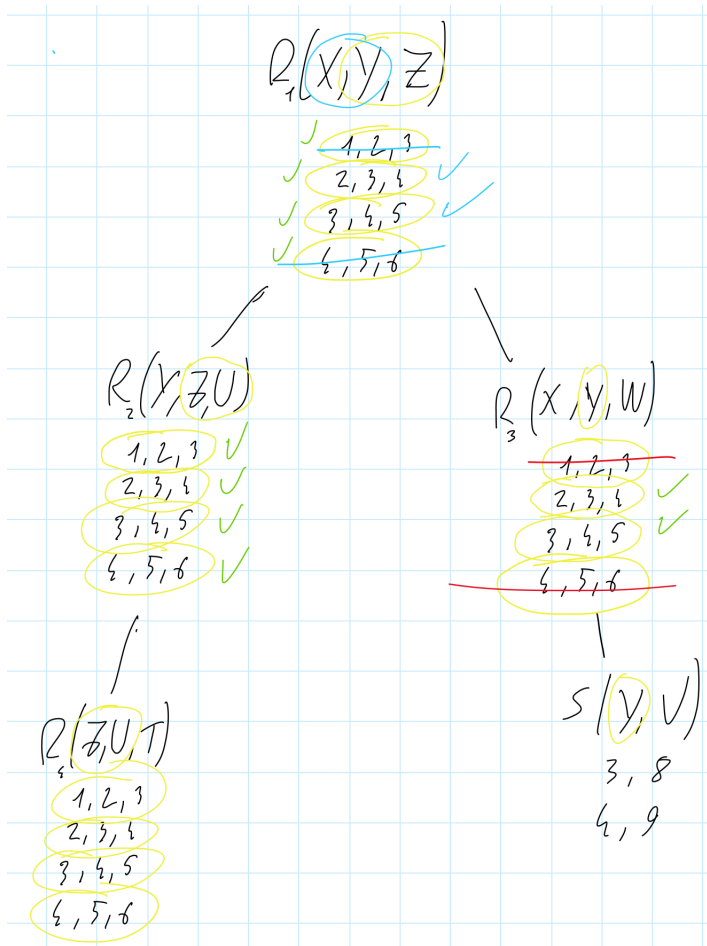 R₁(X,Y,Z)
1,2,3
2,3,4
3,4,5
4,5,6
R₂(Y,Z,U)
1,2,3
2,3,4
3,4,5
4,5,6
R₃(X,Y,W)
1,2,3
2,3,4
3,4,5
4,5,6
R₄(Z,U,T)
1,2,3
2,3,4
3,4,5
4,5,6
S(Y,V)
3,8
4,9